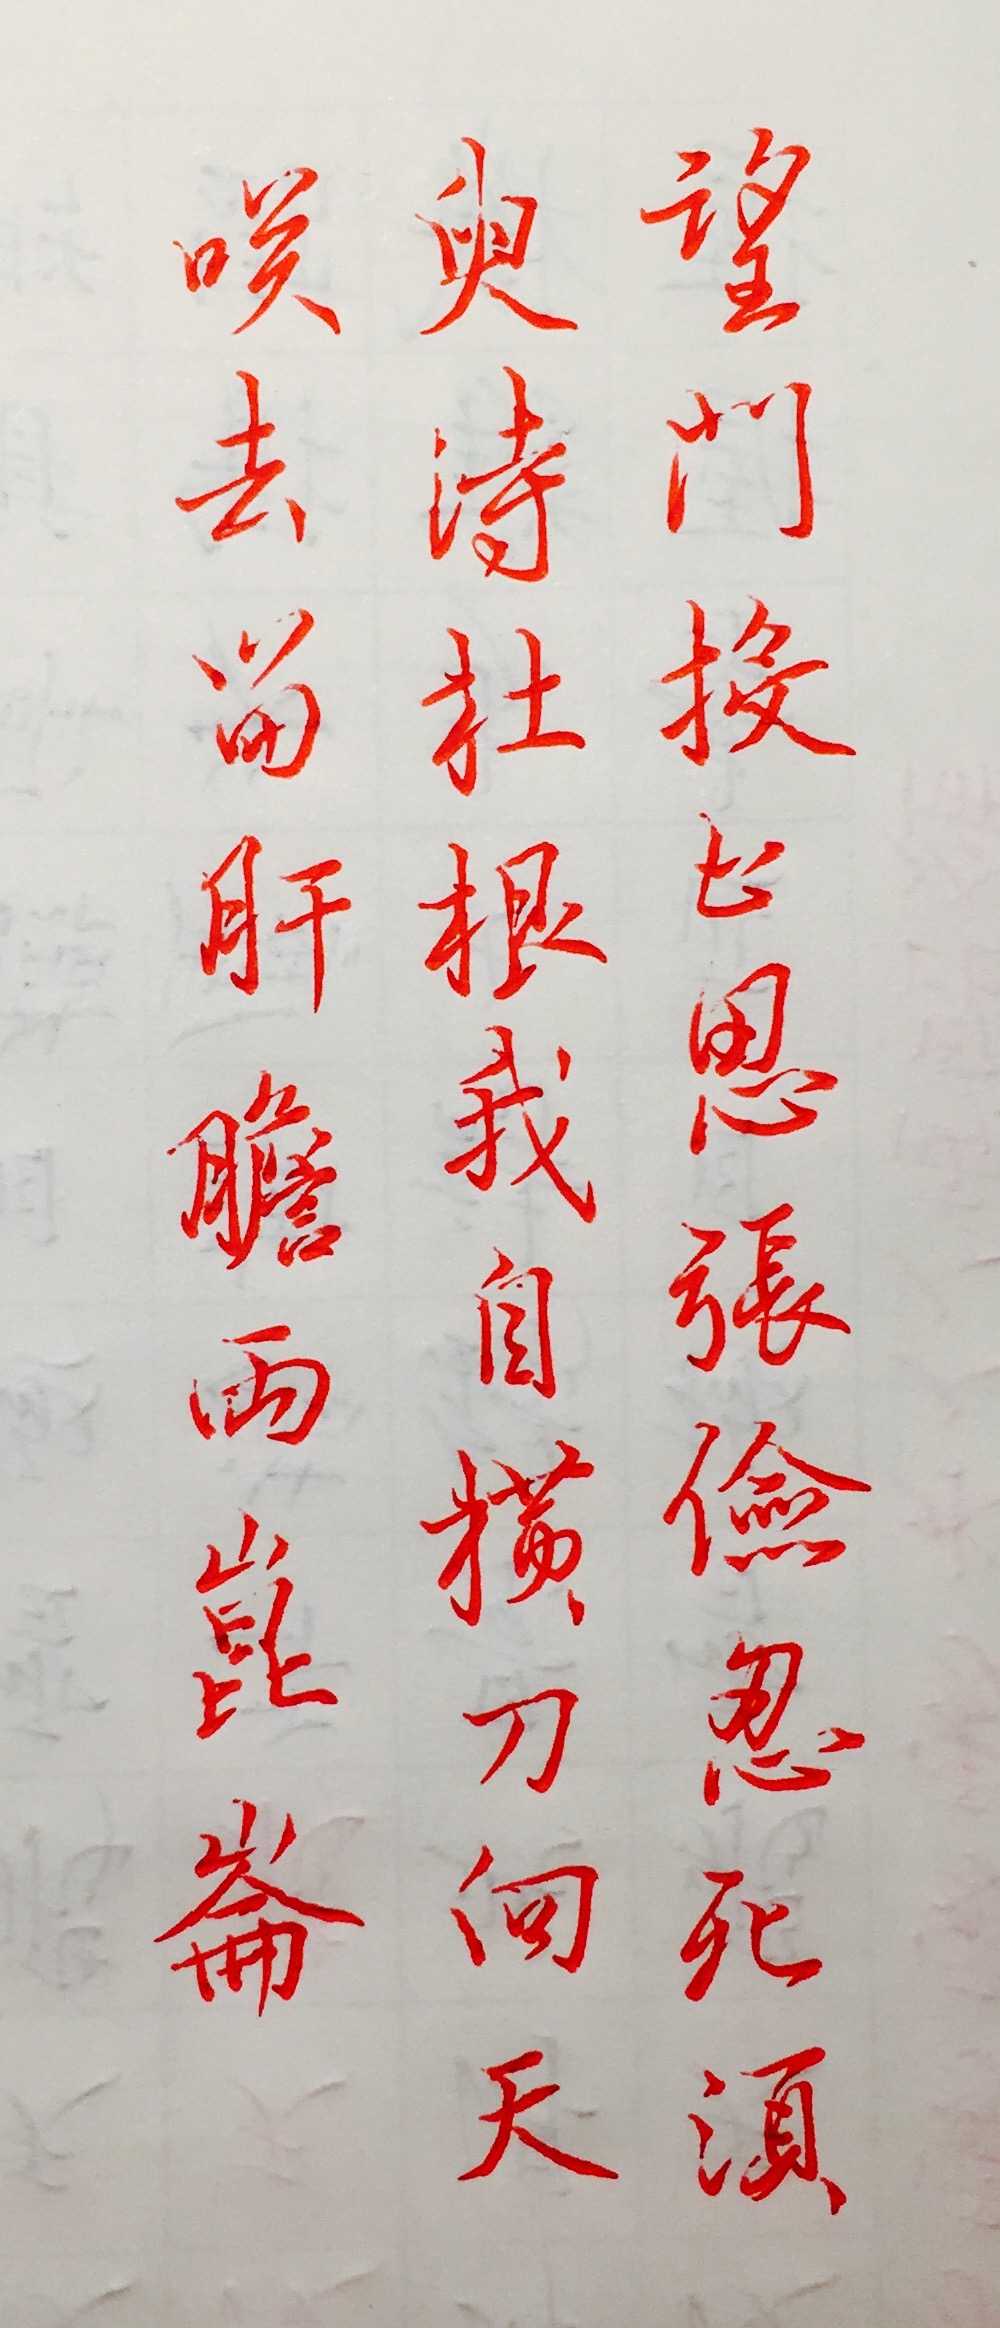 望門投止思張儉忍死須
臾待杜根我自橫刀向天
咲去留肝膽兩崑崙